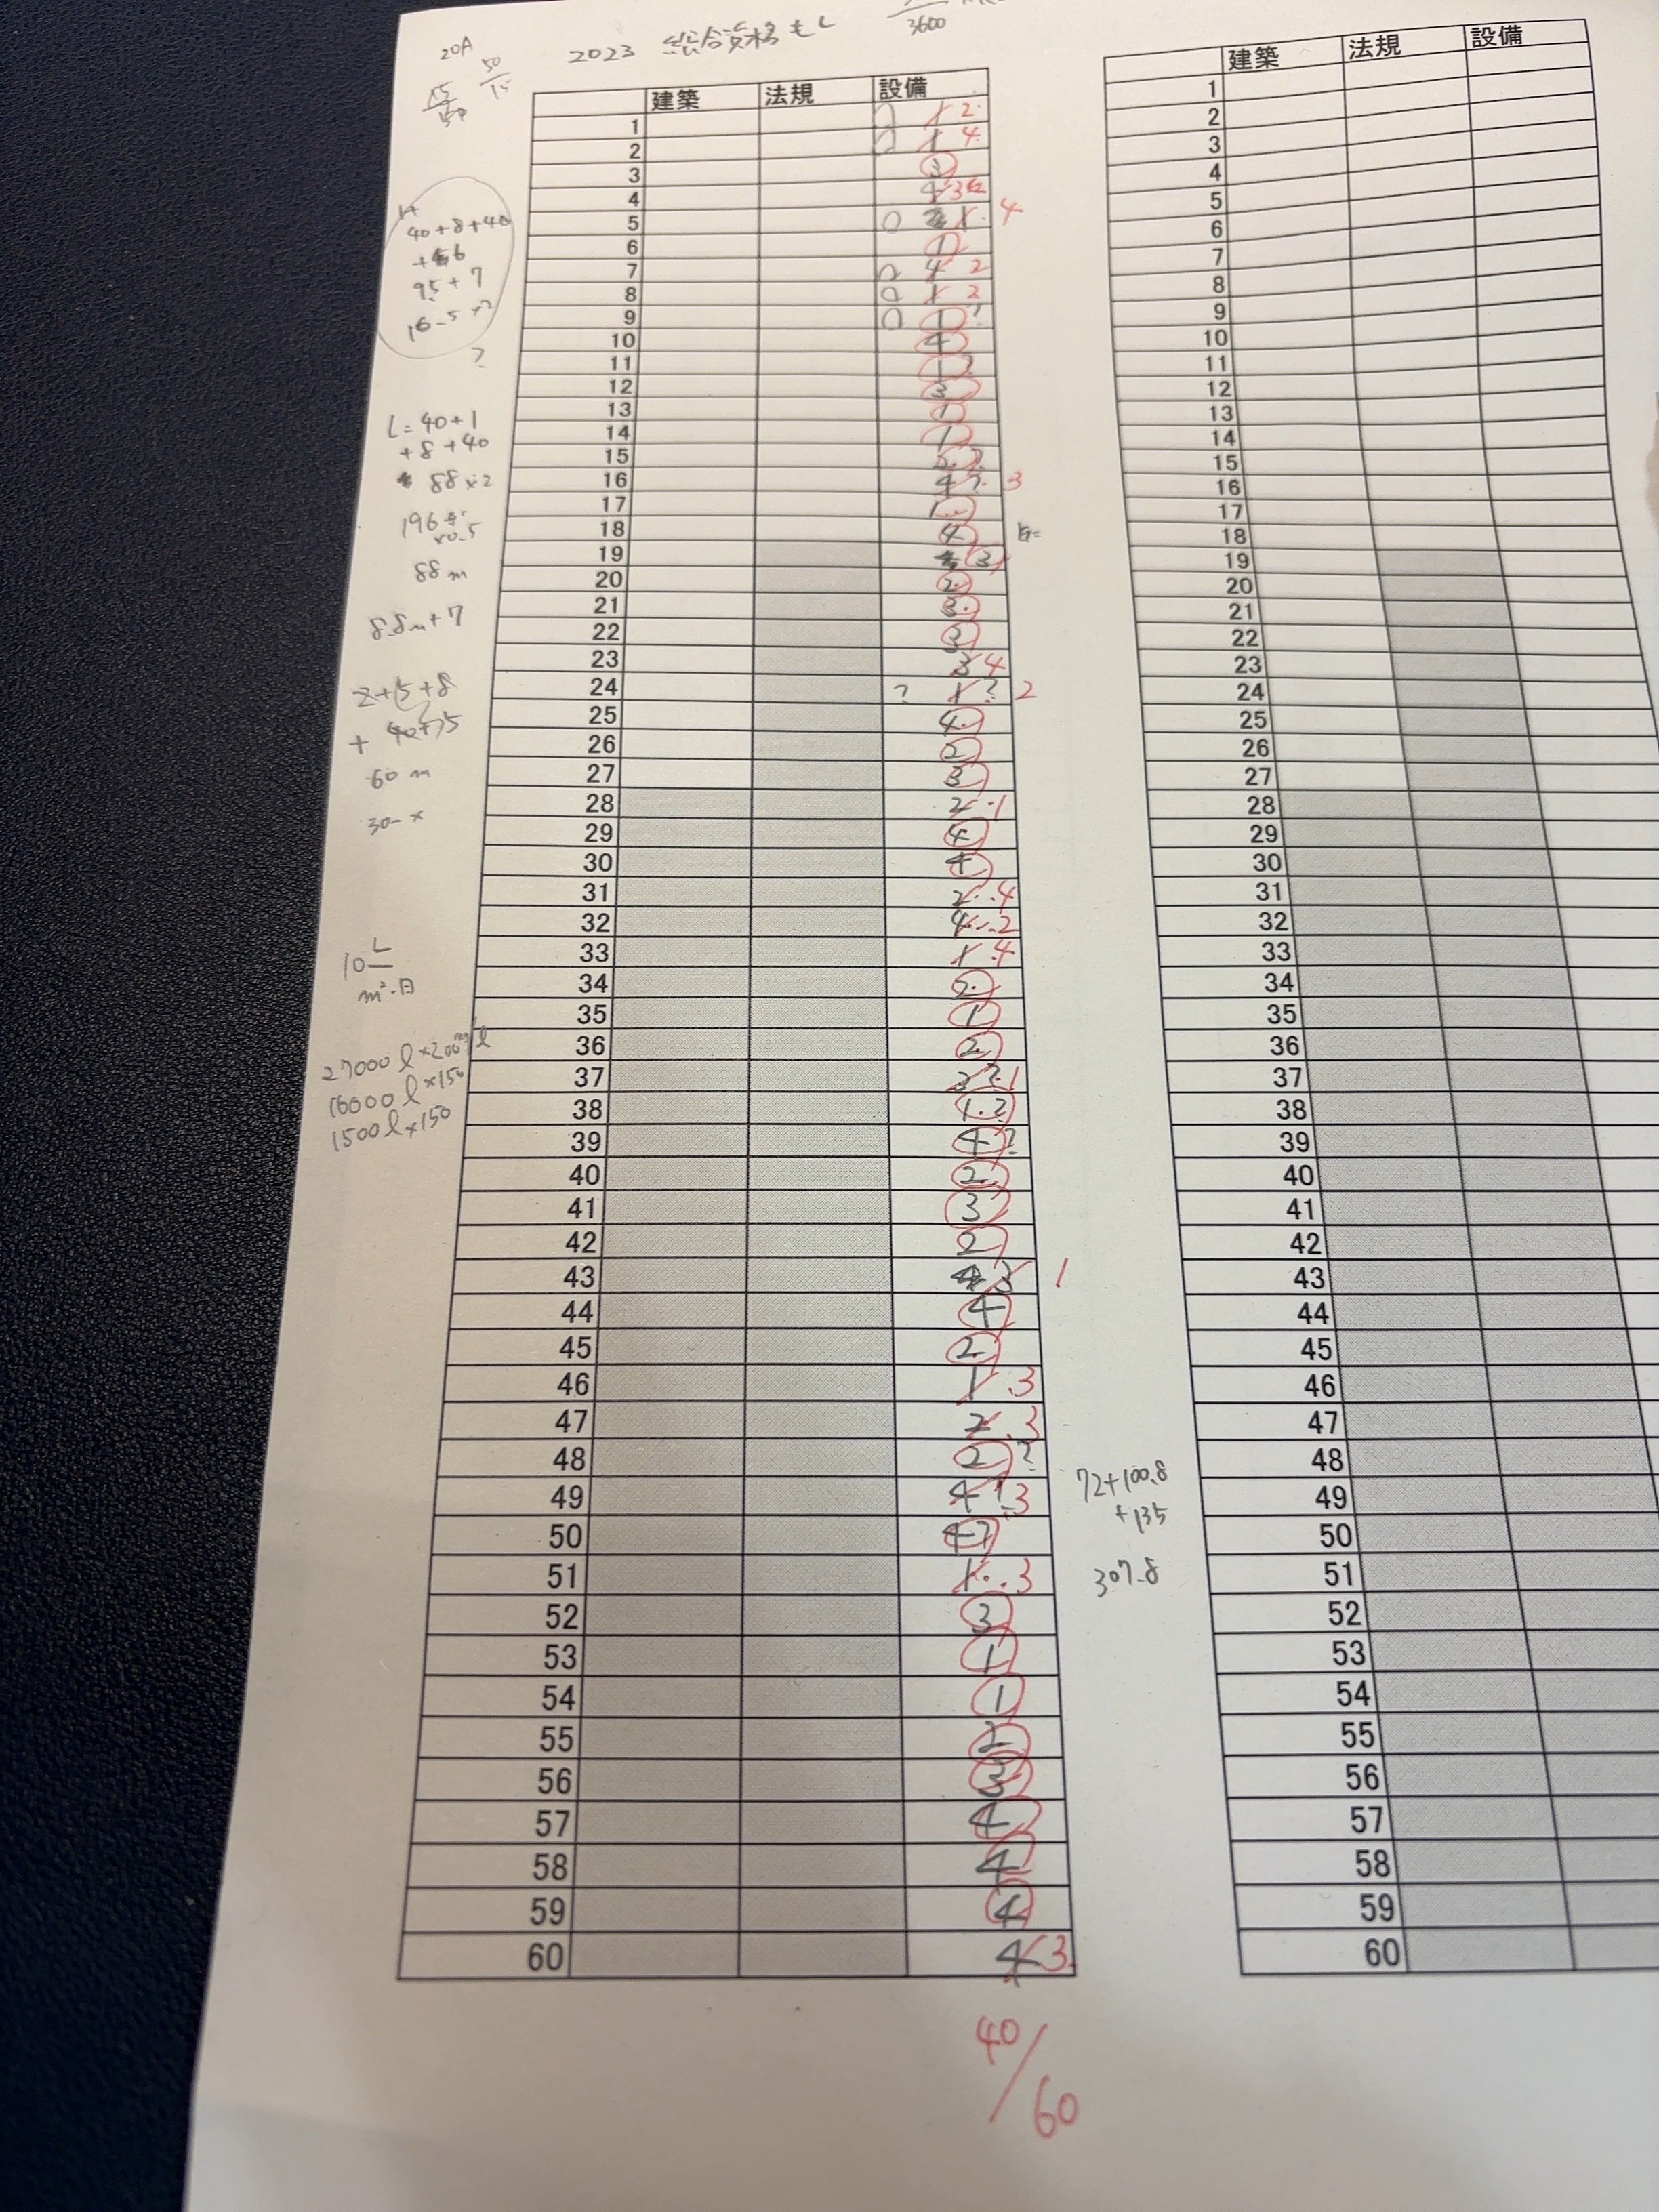 2023 総合資格モし
3600
20A
15/50
50/15
建築 法規 設備
1 1 2
2 1 4
3 3
4 4 3
5 1 4
6 1
7 4 2
8 1 2
9 1 ?
10 4
11 1 ?
12 3
13 1
14 1
15 2. ?
16 4 ? 3
17 1
18 4
19 3
20 2
21 3
22 3
23 3 4
24 ? 1 ? 2
25 4
26 2
27 3
28 2 1
29 4
30 4
31 2 4
32 4 2
33 1 4
34 2
35 1
36 2
37 2 ? 1
38 1. ?
39 4 ?
40 2
41 3
42 2
43 3 1
44 4
45 2
46 1 3
47 2 3
48 2 ?
49 4 ? 3
50 4 ?
51 1 3
52 3
53 1
54 1
55 2
56 3
57 4
58 4
59 4
60 4 3
40/60
40+8+40
95+7
?
L=40+1
+8+40
88×2
196
×0.5
88m
8.8m+7
60m
10 L
m²・日
27000l×200
16000l×150
1500l×150
72+100.8
+135
307.8
建築 法規 設備
1
2
3
4
5
6
7
8
9
10
11
12
13
14
15
16
17
18
19
20
21
22
23
24
25
26
27
28
29
30
31
32
33
34
35
36
37
38
39
40
41
42
43
44
45
46
47
48
49
50
51
52
53
54
55
56
57
58
59
60